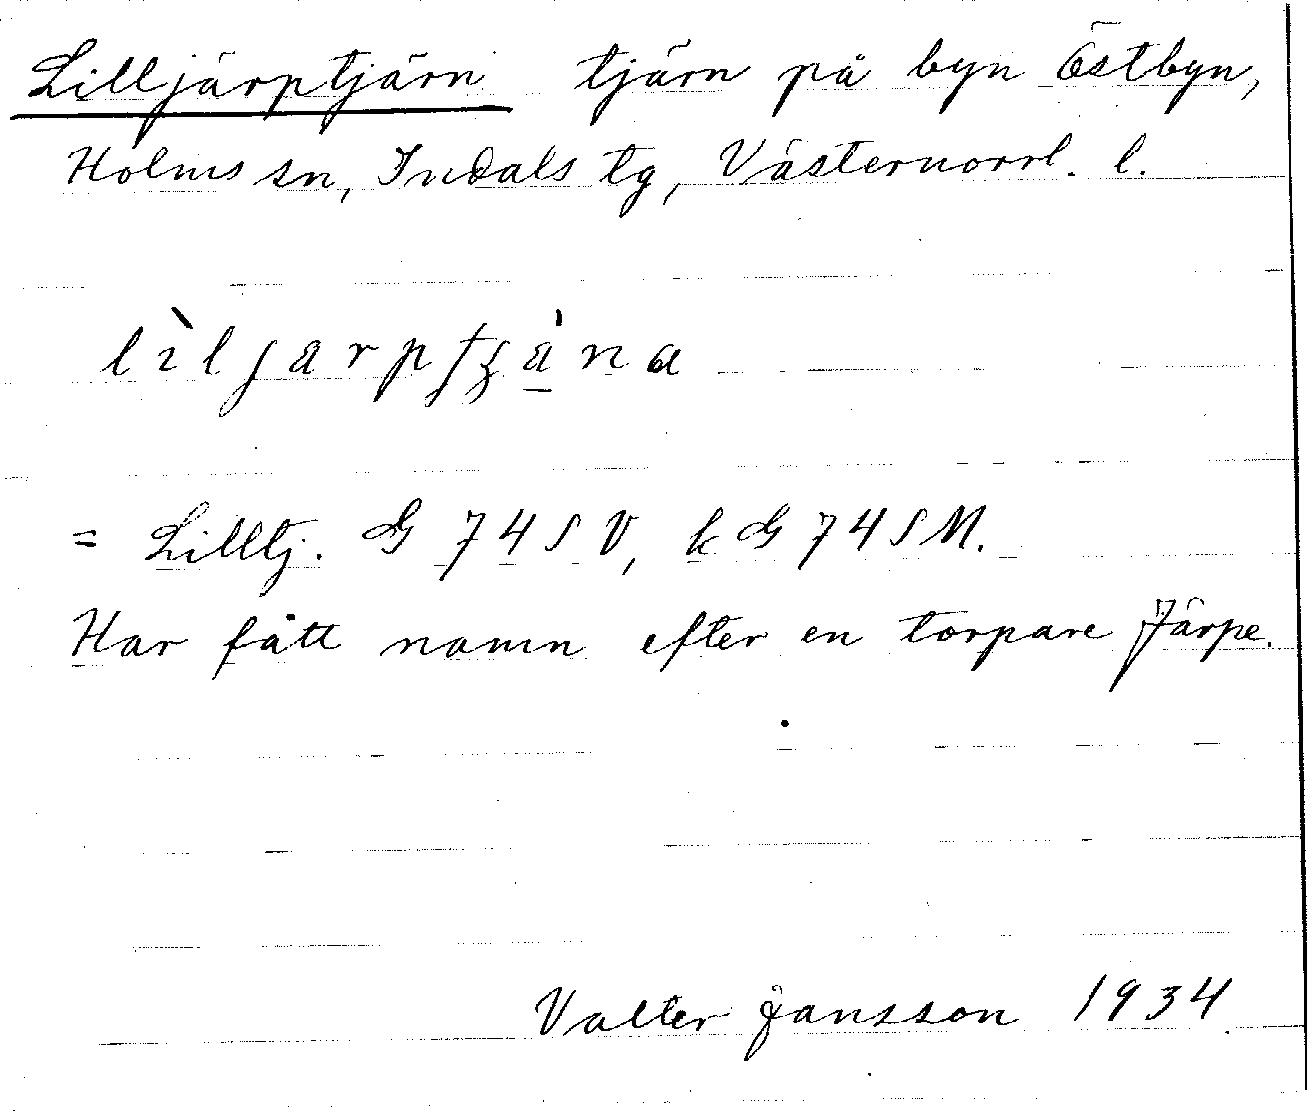 Lilljärptjärn tjärn på byn Östbyn,
Holms sn, Indals tg, Västernorrl. l.
= Lilltj. G 74 S V, k G 74 S M.
Har fått namn efter en torpare Järpe.
Valter Jansson 1934